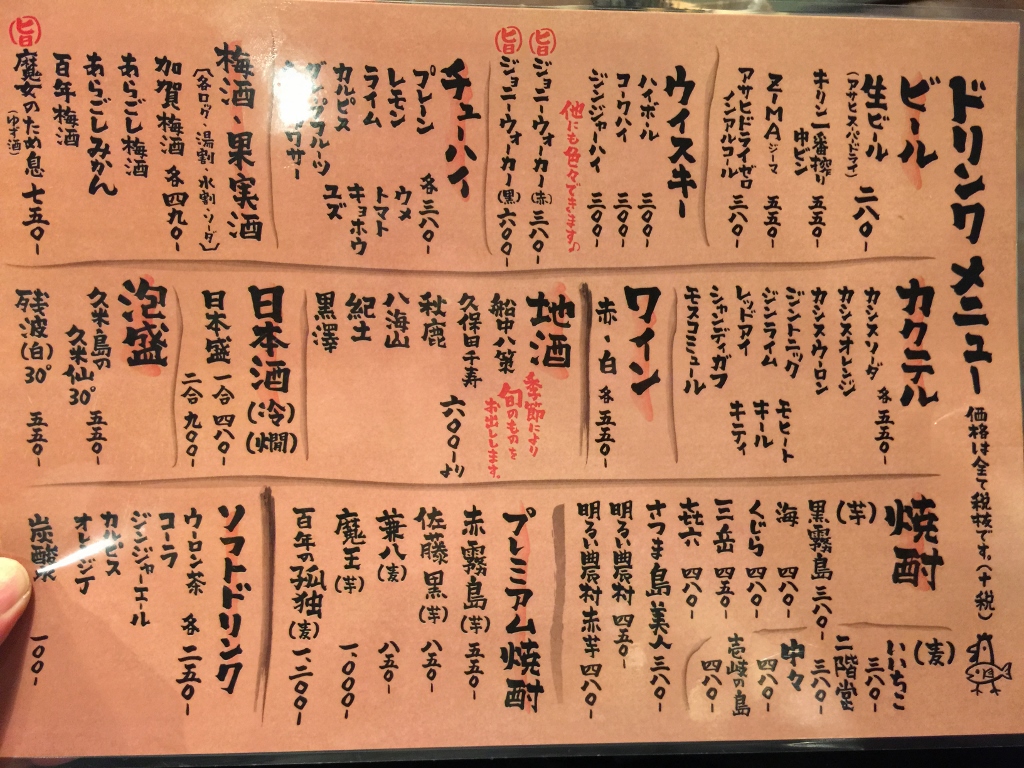 ドリンクメニュー
価格は全て税抜です。(+税)
ビール
生ビール 二八〇-
(アサヒスーパードライ)
キリン一番搾り
中ビン 五五〇-
ZIMA ジーマ 五五〇-
アサヒドライゼロ
ノンアルコール 三八〇-
ウイスキー
ハイボール 三〇〇-
コークハイ 三〇〇-
ジンジャーハイ 三〇〇-
他にも色々できます♪
旨 ジョニーウォーカー(赤) 三八〇-
旨 ジョニーウォーカー(黒) 六〇〇-
チューハイ
プレーン 各三八〇-
レモン ウメ
ライム トマト
カルピス キョホウ
グレープフルーツ ユズ
梅酒・果実酒
〔各ロック・湯割・水割・ソーダ〕
加賀梅酒 各四九〇-
あらごし梅酒
あらごしみかん
百年梅酒
旨 魔女のため息 七五〇-
(ゆず酒)
カクテル
カシスソーダ 各五五〇-
カシスオレンジ
カシスウーロン
ジントニック モヒート
ジンライム キール
レッドアイ キティ
シャンディガフ
モスコミュール
ワイン
赤・白 各五五〇-
地酒
季節により
旬のものを
お出しします。
船中八策
久保田千寿 六〇〇-より
秋鹿
八海山
紀土
黒澤
日本酒(冷)(燗)
日本盛 一合 四八〇-
二合 九〇〇-
泡盛
久米島の
久米仙30° 五五〇-
残波(白)30° 五五〇-
焼酎
(芋)
黒霧島 三八〇-
海 四八〇-
くじら 四八〇-
三岳 四五〇-
㐂六 四八〇-
さつま島美人 三八〇-
明るい農村 四五〇-
明るい農村 赤芋 四八〇-
(麦)
いいちこ 三八〇-
二階堂 三八〇-
中々 四八〇-
壱岐の島 四八〇-
プレミアム焼酎
赤霧島(芋) 五五〇-
佐藤 黒(芋) 八五〇-
兼八(麦) 八五〇-
魔王(芋) 一、〇〇〇-
百年の孤独(麦) 一、二〇〇-
ソフトドリンク
ウーロン茶 各二五〇-
コーラ
ジンジャーエール
カルピス
オレンジ
炭酸 一〇〇-